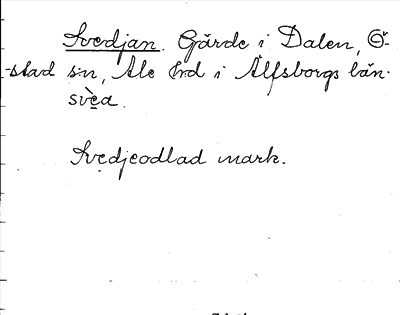 Svedjan. Gärde i Dalen, Ö-
-stad s:n, Ale hrd i Älfsborgs län.
svèa.
Svedjeodlad mark.